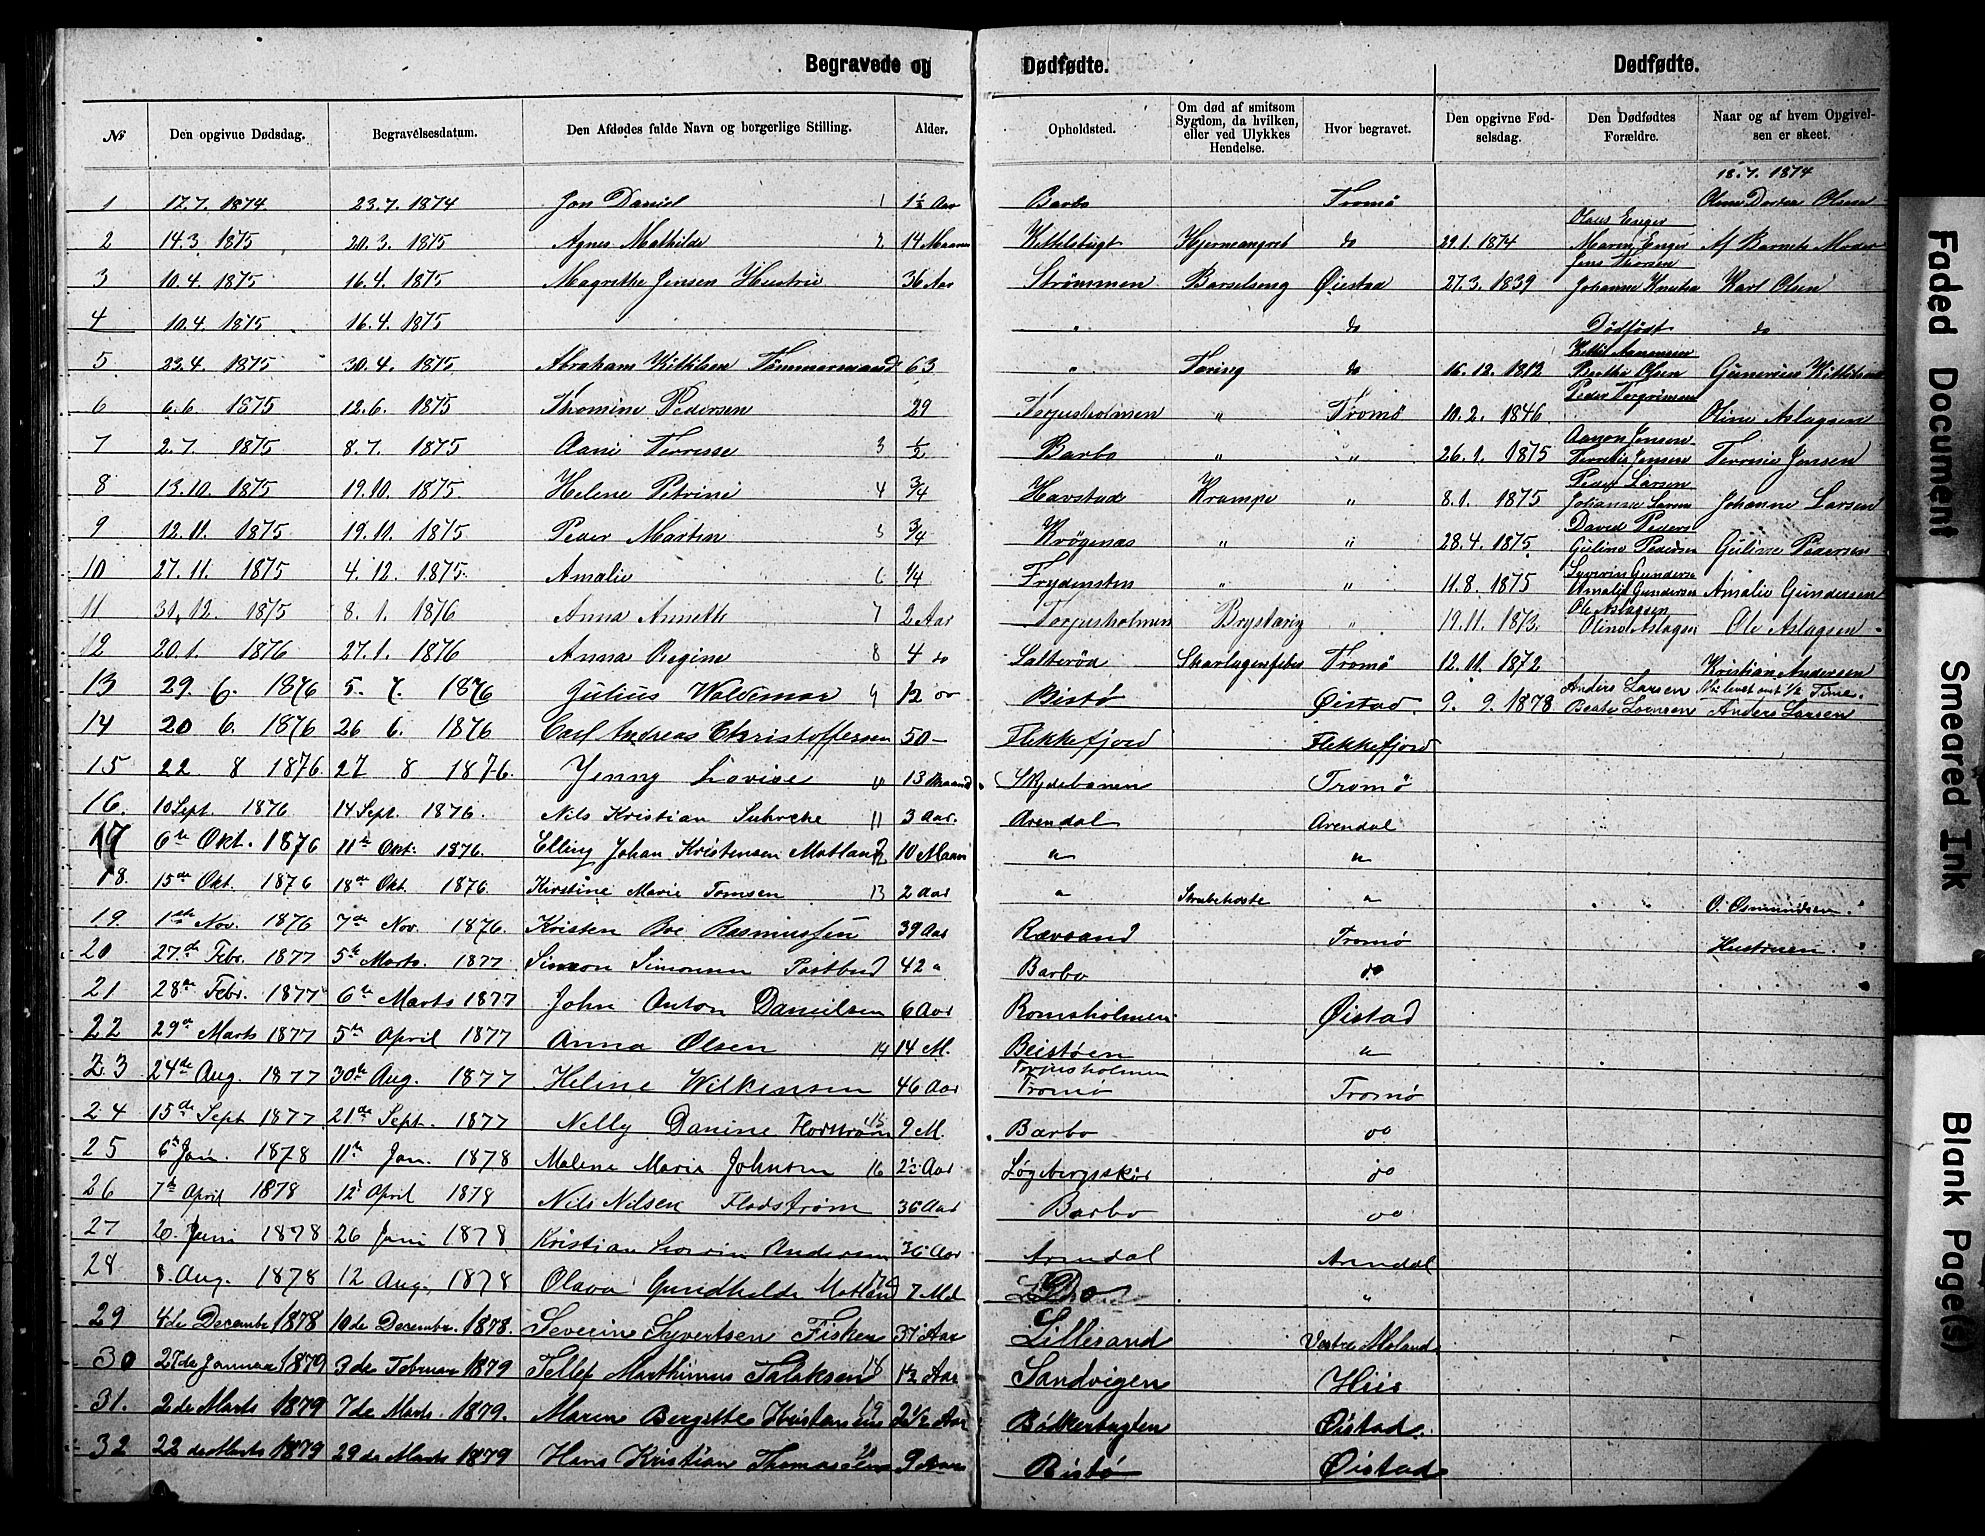 Begravede og Dødfødte. Dødfødte.
№ Den opgivne Dødsdag. Begravelsesdatum. Den Afdødes fulde Navn og borgerlige Stilling. Alder. Opholdsted. Om død af smitsom Sygdom, da hvilken, eller ved Ulykkes Hendelse. Hvor begravet. Den opgivne Fødselsdag. Den Dødfødtes Forældre. Naar og af hvem Opgivelsen er skeet.
18.7. 1874
1 17.7. 1874 23.7. 1874 Jon Daniel 1 1½ Aar Barbo Tromø Olsen
Olaus Enger
2 14.3 1875 20.3. 1875 Agnes Mathilde 2 14 Maaner Kittelsbugt do 29.1. 1874 Maren Enger Af Barnets Moder
Jens Thorsen
3 10.4. 1875 16.4. 1875 Magrethe Jensen Hustru 36 Aar Strømmen Barselseng Øiestad 27.3. 1839 Johanne Karl Olsen
4 10.4 1875 16.4. 1875 " do Dødfødt do
5 23.4 1875 30.4. 1875 Abraham Kittilsen Tømmermand 63 " Tæring do 16.12. 1812 Olsen Gunerius
6 6.6. 1875 12.6. 1875 Thomine Pedersen 29 Terjusholmen " Tromø 10.2. 1846 Oline Aslagsen
Aanon Jensen
7 2.7. 1875 8.7. 1875 Aani Terese 3 ½ Barbo " " 26.1. 1875 Jensen Jensen
Peder Larsen
8 13.10. 1875 19.10. 1875 Helene Petrine 4 ¾ Havstad Krampe " 8.1. 1875 Johanne Larsen Johanne Larsen
David Peders
9 12.11. 1875 19.11. 1875 Peder Martin 5 ¾ Krøgenæs " " 28.4. 1875 Guline Pedersen Guline Pedersen
Syverin Gunders
10 27.11. 1875 4.12. 1875. Amalie 6 ¼ Frydensten " " 11.8. 1875 Amalie Gundersen Amalie Gundersen
Ole Aslagsen
11 31.12. 1875 8.1. 1876 Anna Annette 7 2 Aar Terjusholmen Brysttæring " 19.11. 1873. Oline Aslagsen Ole Aslagsen
12 20.1. 1876 27.1. 1876 Anna Regine 8 4 do Salterød Skarlagensfeber Tromø 12.11. 1872 Kristian Andersen
Anders Larsen
13 29. 6. 1876 5. 7. 1876 Julius Waldemar 9 ½ Bistø Øistad. 9. 9. 1878 Beate Larsen Anders Larsen
14 20 6. 1876 26 6. 1876 Carl Andreas Christoffersen 50 — Flekkefjord Flekkefjord
15 22 8 1876. 27 8 1876. Jenny Lovise 10 13 Maaned Skydebanen Tromö
16. 10 Sept. 1876 14 Sept. 1876. Nils Kristian Suhrcke 11 3 Aar. Arendal Arendal
17 6te Okt. 1876 11te Okt. 1876. Elling Johan Kristensen Motland 12 10 Maan " "
18. 15de Okt. 1876 18de Okt. 1876. Kirstine Marie Tomsen 13 2 Aar " Strubehoste " O. Osmundsen.
19. 1ste Nov. 1876 7de Nov. 1876. Kristen Boe Rasmussen 39 Aar Rævsand Tromø Hustruen.
20 27de Febr. 1877 5te Marts. 1877. Simon Simonsen Postbud 42 " Barbo do
21 28de Febr. 1877 6te Marts 1877 John Anton Danielsen 6 Aar Romsholmen Øistad
22 29de Marts 1877 5te April 1877 Anna Olsen 14 14 M. Beistøen "
Torjusholmen
23 24de Aug. 1877 30te Aug. 1877 Heline Wilkensen 46 Aar Tromø Tromø
24 15de Sept 1877 21de Sept. 1877 Nelly Danine Flodstrøm 15 9 M. Barbo do
25 6te Jan. 1878 11te Jan. 1878 Malene Marie Johnsen 16 2½ Aar Løgebergsskår do
26 7de April 1878 12 April 1878 Nils Nilsen Flodstrøm 36 Aar Barbo do
27 20. Juni 1878 26 Juni 1878 Kristian Andersen 36 Aar Arendal Arendal
28 8 Aug. 1878 12 Aug. 1878 Olava Gundhilde Motland 17 7 Md Do "
29 4de Decembr 1878 10de Decembr. 1878. Severin Syvertsen Fisker 37 Aar Lillesand Vestre Moland
30 27de Januar 1879 3de Februar 1879 Tellef Marthinius Talaksen 18 1½ Aar Sandvigen Hiis
31. 2de Marts 1879 7de Marts. 1879. Maren Bergitte Kristensen 19 2½ Aar Bökkerbugten Øistad.
32 22de Marts 1879 29de Marts 1879 Hans Kristian Thomassen 20 9 Aar Bistø Øistad
Faded Document
Smeared Ink
Blank Page(s)